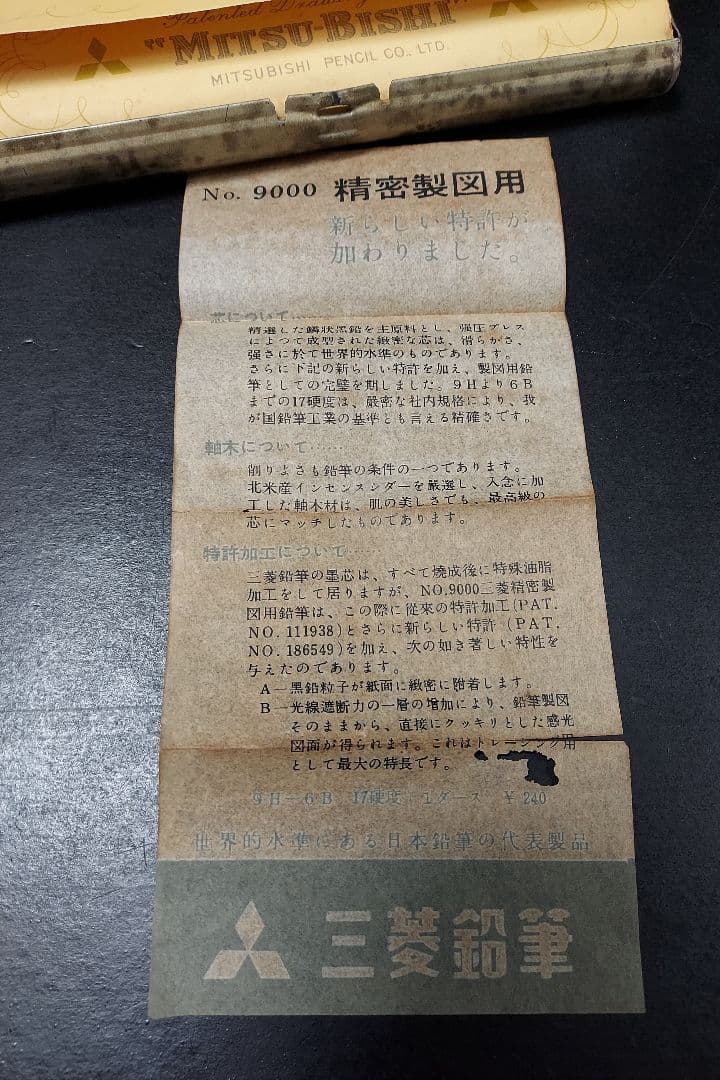 Patented Drawing
"MITSU-BISHI"
MITSUBISHI PENCIL CO., LTD.
No. 9000 精密製図用
新らしい特許が
加わりました。
芯について……
精選した鱗状黒鉛を主原料とし、強圧プレス
によつて成型された緻密な芯は、滑らかさ、
強さに於て世界的水準のものであります。
さらに下記の新らしい特許を加え、製図用鉛
筆としての完璧を期しました。9Hより6B
までの17硬度は、厳密な社内規格により、我
が国鉛筆工業の基準とも言える精確さです。
軸木について……
削りよさも鉛筆の条件の一つであります。
北米産インセンスシダーを厳選し、入念に加
工した軸木材は、肌の美しさでも、最高級の
芯にマッチしたものであります。
特許加工について……
三菱鉛筆の墨芯は、すべて焼成後に特殊油脂
加工をして居りますが、NO.9000三菱精密製
図用鉛筆は、この際に従来の特許加工(PAT.
NO. 111938)とさらに新らしい特許 (PAT.
NO. 186549)を加え、次の如き著しい特性を
与えたのであります。
A—黒鉛粒子が紙面に緻密に附着します。
B—光線遮断力の一層の増加により、鉛筆製図
そのままから、直接にクッキリとした感光
図面が得られます。これはトレーシング用
として最大の特長です。
9H—6B 17硬度 1ダース ¥240
世界的水準にある日本鉛筆の代表製品
三菱鉛筆